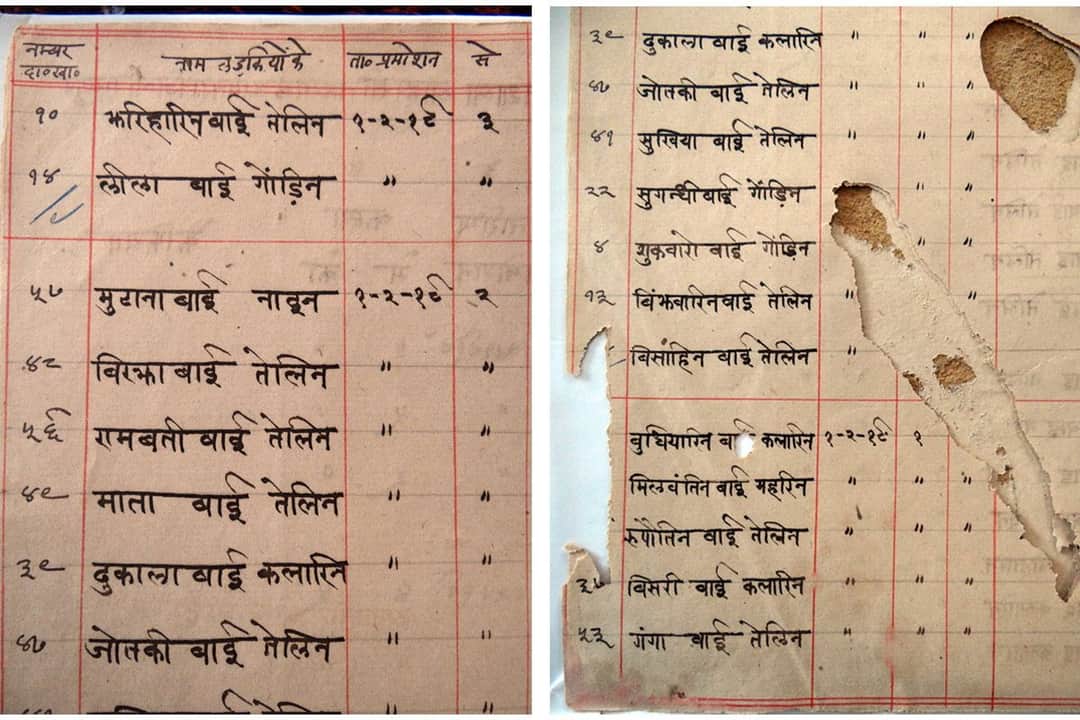 नम्बर दा०खा० नाम लड़कियों के ता० प्रमोशन से
१० झरिहारिन बाई तेलिन १-२-१८ ३
१४ लीला बाई गोंड़िन " "
५७ मुटाना बाई नाइन १-२-१८ २
४८ बिरझा बाई तेलिन " "
५६ रामबती बाई तेलिन " "
४९ माता बाई तेलिन " "
३९ दुकाला बाई कलारिन " "
४० जोतकी बाई तेलिन " "
३९ दुकाला बाई कलारिन " " "
४० जोतकी बाई तेलिन " " "
४१ सुखिया बाई तेलिन " " "
२२ सुगन्धी बाई गोंड़िन " "
४ शुकवारो बाई गोंड़िन " "
१३ बिंझवारिन बाई तेलिन " "
बिसाहिन बाई तेलिन "
बुधियारिन बाई कलारिन १-२-१८ १
मिलवंतिन बाई महरिन " " "
रुपौतिन बाई तेलिन " " "
३७ बिसरी बाई कलारिन " " "
५३ गंगा बाई तेलिन " " "